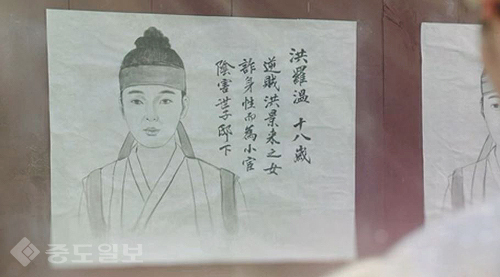 洪羅溫 十八歲
逆賊洪景來之女
詐身性而爲小宦
陰害世子邸下
중도일보